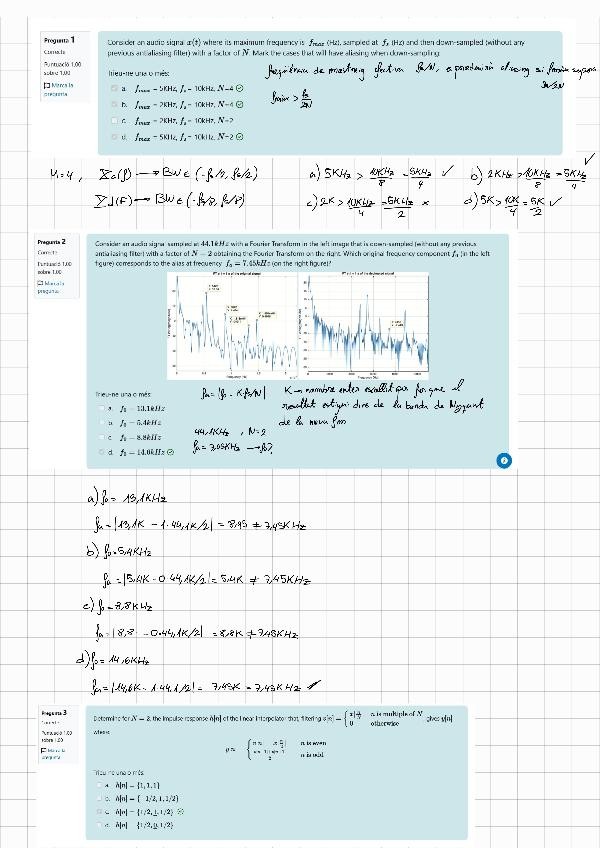 Pregunta 1
Correcte
Puntuació 1,00
sobre 1,00
Marca la
pregunta
Consider an audio signal x(t) where its maximum frequency is f_max (Hz), sampled at f_s (Hz) and then down-sampled (without any
previous antialiasing filter) with a factor of N. Mark the cases that will have aliasing when down-sampling:
Trieu-ne una o més:
a. f_max = 5KHz, f_s = 10kHz, N=4
b. f_max = 2KHz, f_s = 10kHz, N=4
c. f_max = 2KHz, f_s = 10kHz, N=2
d. f_max = 5KHz, f_s = 10kHz, N=2
freqüència de mostreig efectiva fs/N, apareixerà aliasing si fmàx supera
fs/2N
fmàx > fs/2N
N=4, → BW ∈ (-fs/2, fs/2)
→ BW ∈ (-fs/8, fs/8)
a) 5KHz > 10KHz/8 = 5KHz/4 ✓
b) 2KHz > 10KHz/8 = 5KHz/4 ✓
c) 2K > 10KHz/4 = 5KHz/2 ×
d) 5K > 10K/4 = 5K/2 ✓
Pregunta 2
Correcte
Puntuació 1,00
sobre 1,00
Marca la
pregunta
Consider an audio signal sampled at 44.1kHz with a Fourier Transform in the left image that is down-sampled (without any previous
antialiasing filter) with a factor of N = 2 obtaining the Fourier Transform on the right. Which original frequency component f_0 (in the left
figure) corresponds to the alias at frequency f_a = 7.45kHz (on the right figure)?
Trieu-ne una o més:
a. f_0 = 13.1kHz
b. f_0 = 5.4kHz
c. f_0 = 8.8kHz
d. f_0 = 14.6kHz
fa = |f0 - K fs/N|
K → nombre enter escollit per fer que el
resultat estigui dins de la banda de Nyquist
de la nova fm
44,1KHz, N=2
→ f0?
a) f0 = 13,1KHz
fa = |13,1K - 1·44,1K/2| = 8,95 ≠ 7,45KHz
b) f0 = 5,4KHz
fa = |5,4K - 0·44,1K/2| = 5,4K ≠ 7,45KHz
c) f0 = 8,8KHz
fa = |8,8 - 0·44,1K/2| = 8,8K ≠ 7,45KHz
d) f0 = 14,6KHz
fa = |14,6K - 1·44,1/2| = 7,45K = 7,45KHz ✓
Pregunta 3
Correcte
Puntuació 1,00
sobre 1,00
Marca la
pregunta
Determine for N = 2, the impulse response h[n] of the linear interpolator that, filtering = { x[n/N] n is multiple of N gives y[n]
0 otherwise
where:
n is even
n is odd
Trieu-ne una o més:
a. h[n] = {1, 1, 1}
b. h[n] = {-1/2, 1, 1/2}
c. h[n] = {1/2, 1, 1/2}
d. h[n] = {1/2, 0, 1/2}